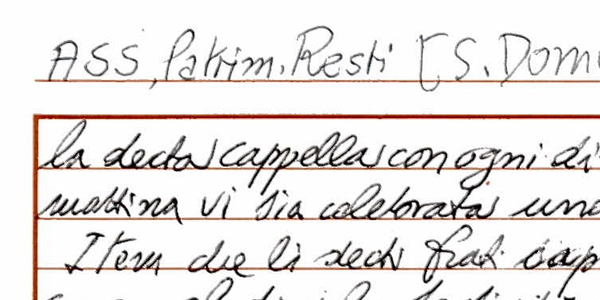 ASS, Patrim. Resti [S. Dom
la decta cappella con ogni di
mattina vi sia celebrata una
Item che li decti frati cap